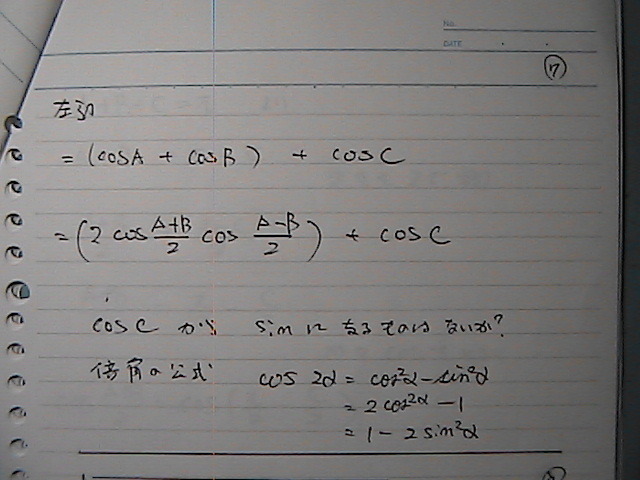 No.
DATE
⑦
左辺
= (cosA + cosB) + cosC
= (2 cos (A+B)/2 cos (A-B)/2) + cosC
cosC から sinに なるものは ないか?
倍角の公式 cos 2α = cos²α - sin²α
= 2cos²α - 1
= 1 - 2sin²α